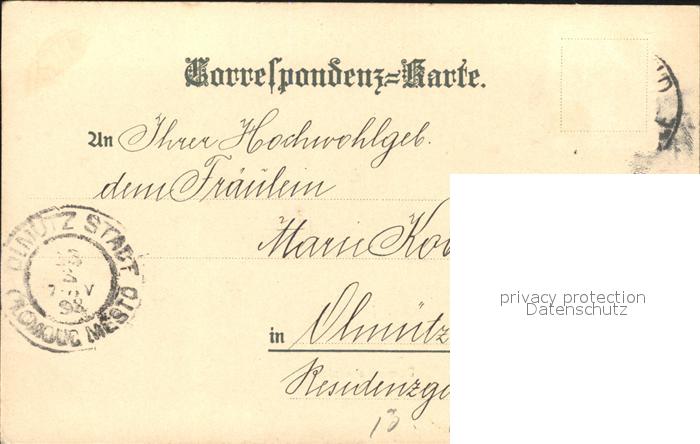 Correspondenz=Karte.
An Ihrer Hochwohlgeb.
dem Fräulein
Marie
in Olmütz
13
OLMÜTZ STADT
OLOMOUC MĚSTO
98
privacy protection
Datenschutz